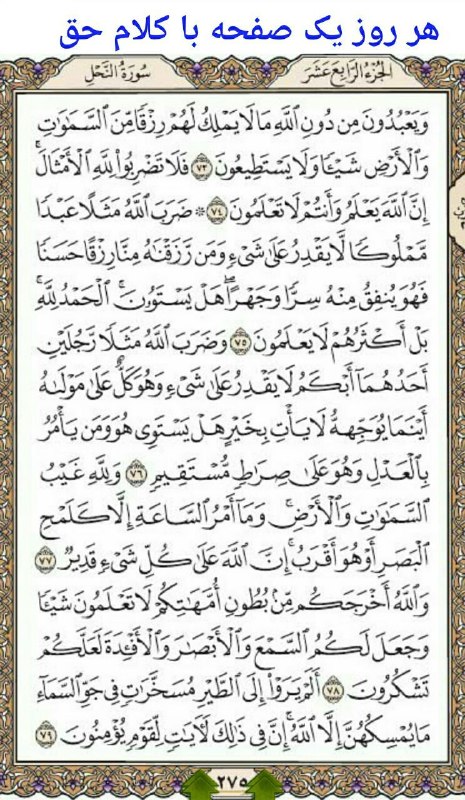 هر روز یک صفحه با کلام حق
الجُزءُ الرَّابِعَ عَشَرَ
سُورَةُ النَّحْلِ
وَيَعْبُدُونَ مِن دُونِ ٱللَّهِ مَا لَا يَمْلِكُ لَهُمْ رِزْقًا مِّنَ ٱلسَّمَٰوَٰتِ
وَٱلْأَرْضِ شَيْـًٔا وَلَا يَسْتَطِيعُونَ ٧٣ فَلَا تَضْرِبُوا۟ لِلَّهِ ٱلْأَمْثَالَ ۚ
إِنَّ ٱللَّهَ يَعْلَمُ وَأَنتُمْ لَا تَعْلَمُونَ ٧٤ ۞ ضَرَبَ ٱللَّهُ مَثَلًا عَبْدًا
مَّمْلُوكًا لَّا يَقْدِرُ عَلَىٰ شَىْءٍ وَمَن رَّزَقْنَٰهُ مِنَّا رِزْقًا حَسَنًا
فَهُوَ يُنفِقُ مِنْهُ سِرًّا وَجَهْرًا ۖ هَلْ يَسْتَوُۥنَ ۚ ٱلْحَمْدُ لِلَّهِ ۚ
بَلْ أَكْثَرُهُمْ لَا يَعْلَمُونَ ٧٥ وَضَرَبَ ٱللَّهُ مَثَلًا رَّجُلَيْنِ
أَحَدُهُمَآ أَبْكَمُ لَا يَقْدِرُ عَلَىٰ شَىْءٍ وَهُوَ كَلٌّ عَلَىٰ مَوْلَىٰهُ
أَيْنَمَا يُوَجِّههُّ لَا يَأْتِ بِخَيْرٍ ۖ هَلْ يَسْتَوِى هُوَ وَمَن يَأْمُرُ
بِٱلْعَدْلِ ۙ وَهُوَ عَلَىٰ صِرَٰطٍ مُّسْتَقِيمٍ ٧٦ وَلِلَّهِ غَيْبُ
ٱلسَّمَٰوَٰتِ وَٱلْأَرْضِ ۚ وَمَآ أَمْرُ ٱلسَّاعَةِ إِلَّا كَلَمْحِ
ٱلْبَصَرِ أَوْ هُوَ أَقْرَبُ ۚ إِنَّ ٱللَّهَ عَلَىٰ كُلِّ شَىْءٍ قَدِيرٌ ٧٧
وَٱللَّهُ أَخْرَجَكُم مِّنۢ بُطُونِ أُمَّهَٰتِكُمْ لَا تَعْلَمُونَ شَيْـًٔا
وَجَعَلَ لَكُمُ ٱلسَّمْعَ وَٱلْأَبْصَٰرَ وَٱلْأَفْـِٔدَةَ ۙ لَعَلَّكُمْ
تَشْكُرُونَ ٧٨ أَلَمْ يَرَوْا۟ إِلَى ٱلطَّيْرِ مُسَخَّرَٰتٍ فِى جَوِّ ٱلسَّمَآءِ
مَا يُمْسِكُهُنَّ إِلَّا ٱللَّهُ ۗ إِنَّ فِى ذَٰلِكَ لَءَايَٰتٍ لِّقَوْمٍ يُؤْمِنُونَ ٧٩
٢٧٥